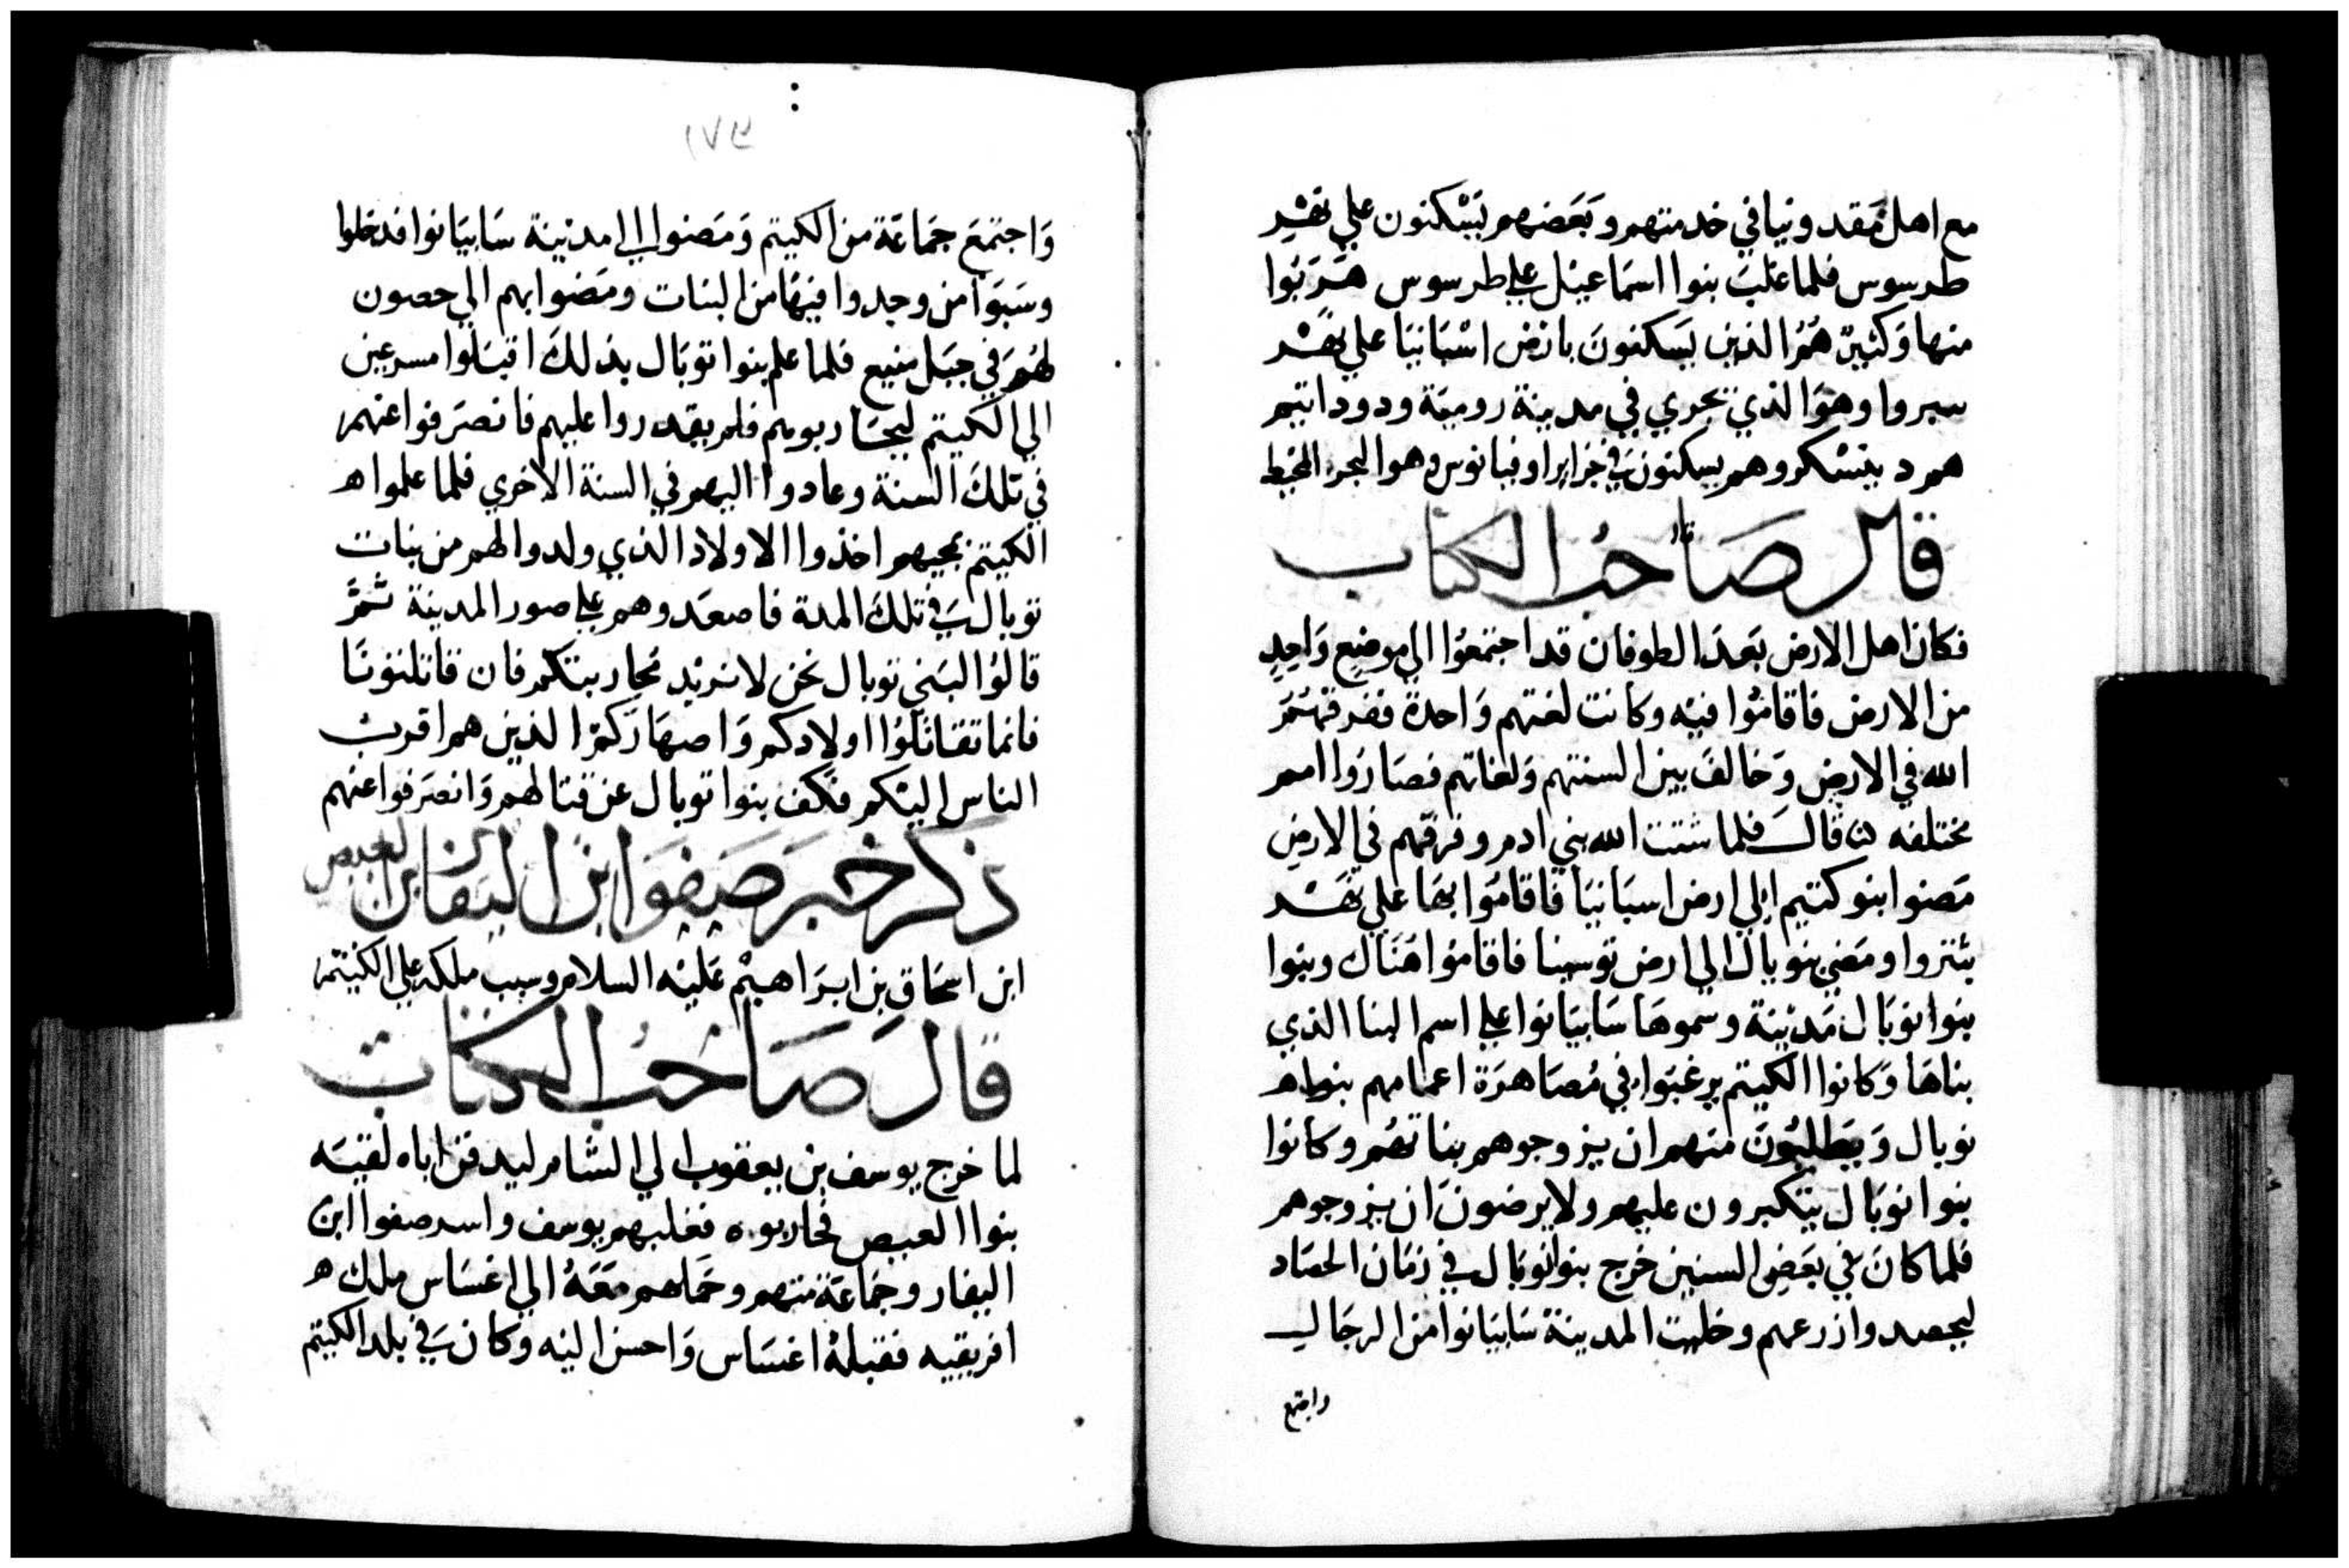 مع اهل مقدونيا في خدمتهم وبَعَضهم يَسْكنون علي نهْر
طرسوس فلما غلبَ بنوا اسمَاعيل علي طرسوس هَرَبُوا
منها وَكثيرٌ هُمُ الذين يَسكنونَ بارض اسْبَانيَا علي نهْر
سيروا وهوَ الذي تجري في مدينة روميَة ودودانيم
هم د ينشكر وهم يسكنون في جزاير اوقيانوس وهوا البحر المحيط
قال صَاحبُ الكتاب
فكان اهل الارض بَعدَ الطوفان قد اجتمعُوا الي موضِع وَاحِدٍ
من الارض فاقامُوا فيه وكانت لغتهم وَاحدة ففرقهُم
الله في الارض وَخالفَ بين السنتهم وَلغاتهم فصَارُوا امم
مختلفه قالَ فلما شتت الله بني ادم وفرقهم في الارض
مَضوا بنو كتيم الي ارض اسبَانيَا فاقامُوا بهَا علي نهَر
بتروا ومَضي توبال الي ارض توسينا فاقامُوا هُنَاك وبنوا
بنوا توبَال مَديْنة وسموهَا سَابيَانوا علي اسم البنا الذي
بناهَا وَكانوا الكيتم يرغبَوا في مُصَاهرَة اعمامهم بنوا
توبال وَيَطلبُونَ منهم ان يزوجوهم بناتهُم وكانوا
بنوا توبَال يتكبرون عليهم ولا يرضونَ ان يزوجوهم
فلما كانَ في بَعَض السنين خرج بنوا توبَال في زمَان الحصَاد
ليحصدوا زرعهم وخلت المدينة سَابيَانوا من الرجَال
واجتمع
وَاجتمَعَ جمَاعَة من الكيتم وَمَضوا الي مديْنة سَابيَانوا فدخلوا
وسَبَوا من وجدوا فيهَا من البنات ومَضوا بهم الي حصون
لهُم في جبَل منيع فلما علم بنوا توبَال بذلكَ اقبَلوا مسرعين
الي الكيتم ليحَاربوهم فلم يقدروا عليهم فانصَرفوا عنهم
في تلكَ السنة وعادوا اليهم في السنة الاخري فلما علموا
الكيتم بمجيهم اخذوا الاولاد الذي ولدوا لهم من بنات
توبال في تلكَ المدة فاصعَدوهم علي صور المدينة ثمَّ
قالوُا لبَني توبال نحن لا نريْد نحاربتكم فان قاتلتونَا
فانما تقَاتلوُا اولادكم وَاصهَارَكمُ الذين هم اقربْ
الناس اليْكم فكف بنوا توبال عن قتالهم وَانصَرفوا عنهم
ذكر خبَر صَيفوَا ابن اليفاز ابن العيص
ابن اسحَاق بن ابرَاهيْم عَليْه السلام وسبب ملكه علي الكيتم
قالَ صَاحبُ الكتاب
لما خرج يوسف بن يعقوب الي الشام ليدفن اباه لقيَه
بنوا العيص فحاربوه فغلبهم يوسف واسر صفوا ابن
اليفاز وجمَاعَة منهم وحمَلهم معَهُ الي اغنسَاس ملك
افريقيه فقبلهُ اغنسَاس وَاحسن اليْه وكان في بلد الكيتم